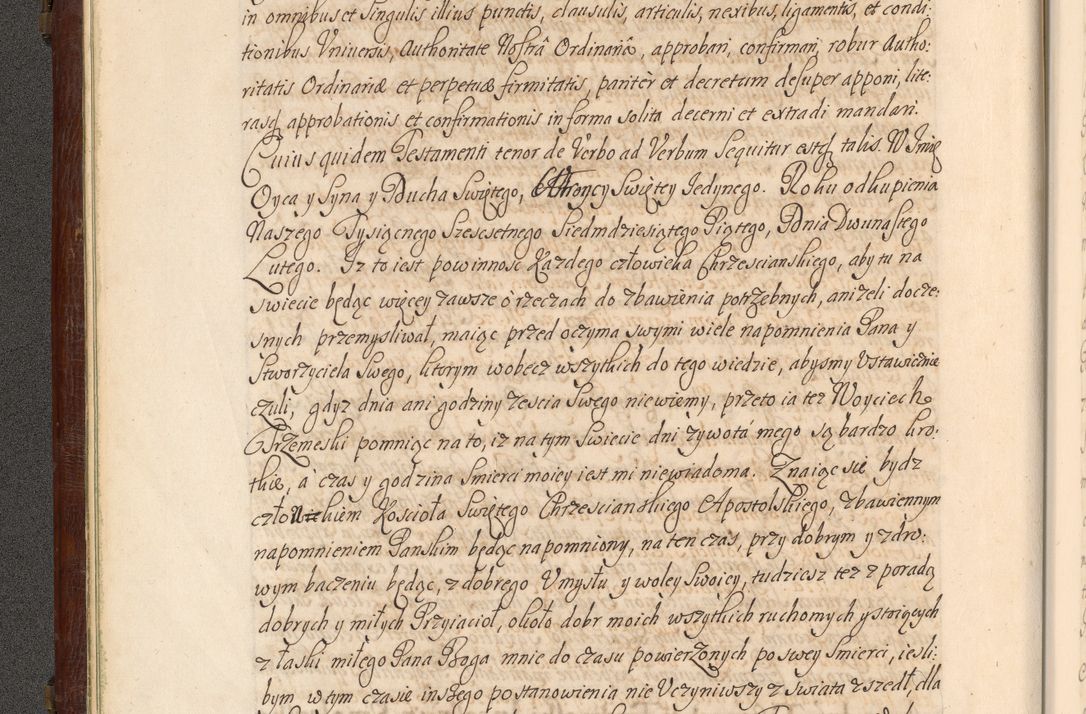 in omnibus et Singulis illius punctis, clausulis, articulis, nexibus, ligamentis, et condi:
tionibus Vniuersis, Authoritate Nostrâ Ordinariâ, approbari, confirmari, robur Autho:
ritatis Ordinariæ et perpetuæ firmitatis, paritèr et decretum desuper apponi, lite:
rasq approbationis et confirmationis in forma solita decerni et extradi mandari.
Cuius quidem Testamenti tenor de Verbo ad Verbum Sequitur estq talis. W Imię
Oyca y Syna y Ducha Swiętego, Troycy Swiętey Jedynego. Roku odkupienia
Naszego Tysiącnego Szescsetnego Siedmdziesiątego Piątego, Dnia Dwunastego
Lutego. Iz to iest powinnosc Kazdego człowieka Chrzescianskiego, aby tu na
swiecie będąc więcey zawsze o rzeczach do zbawienia potrzebnych, anizeli docze:
snych przemysliwał, maiąc przed oczyma swymi wiele napomnienia Pana y
Stworzyciela Swego, ktorym wobecz wszytkich do tego wiedzie, abysmy Vstawicznie
czuli, gdyz dnia ani godziny zescia Swego niewiemy, przeto ia tez Woyciech
Przemeski pomniąc na to, iz na tym Swiecie dni zywotá mego są bardzo kro:
tkie, à czas y godzina Smierci moiey iest mi niewiadoma. Znaiąc się bydz
człowiekiem Koscioła Swiętego Chrzescianskiego Apostolskiego, zbawiennym
napomnieniem Panskim będąc napomniony, na ten czas, przy dobrym y zdro:
wym baczeniu będąc, z dobrego Vmysłu, y woley Swoiey, tudziesz tez z poradą
dobrych y miłych Przyiacioł, około dobr moich wszytkich ruchomych y stoiących
z łaski miłego Pana Boga mnie do czasu powierzonych po swey Smierci, iesli:
bym w tym czasie inszego postanowienia nie Vczyniwszy z Swiata zszedł, dla